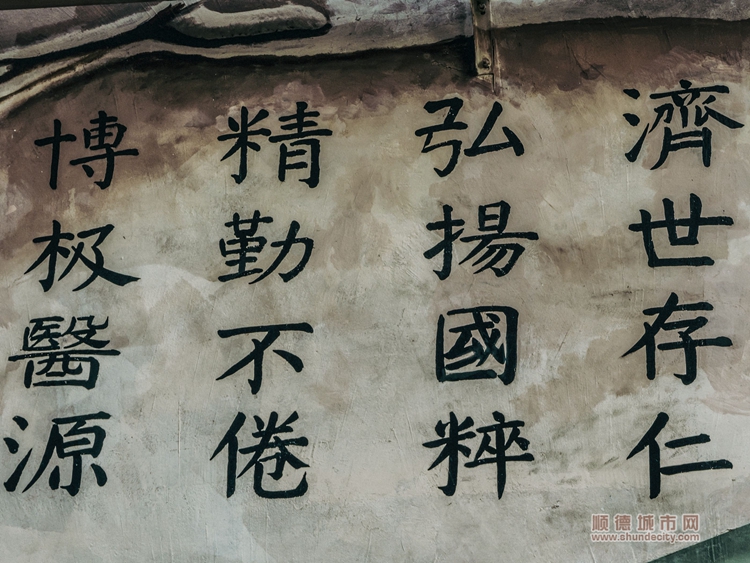 濟世存仁
弘揚國粹
精勤不倦
博极醫源
顺德城市网
www.shundecity.com